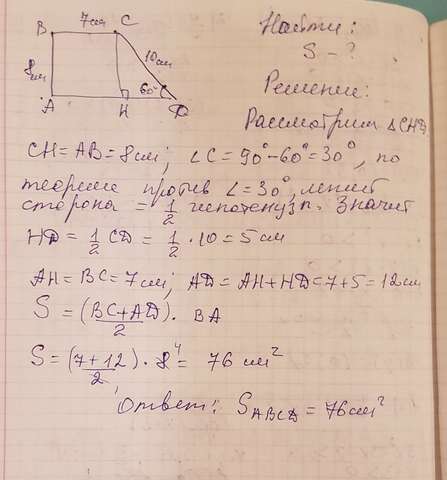 7см
B C
8см
10см
60°
A H D
Найти:
S - ?
Решение:
Рассмотрим ΔCHD.
CH = AB = 8см; ∠C = 90° - 60° = 30°, по
теореме против ∠ = 30°, лежит
сторона = 1/2 гипотенузы. Значит
HD = 1/2 CD = 1/2 · 10 = 5 см
AH = BC = 7см; AD = AH + HD = 7 + 5 = 12см
S = (BC + AD)/2 · BA
S = (7 + 12)/2 · 8 4 = 76 см²
Ответ: S ABCD = 76см²